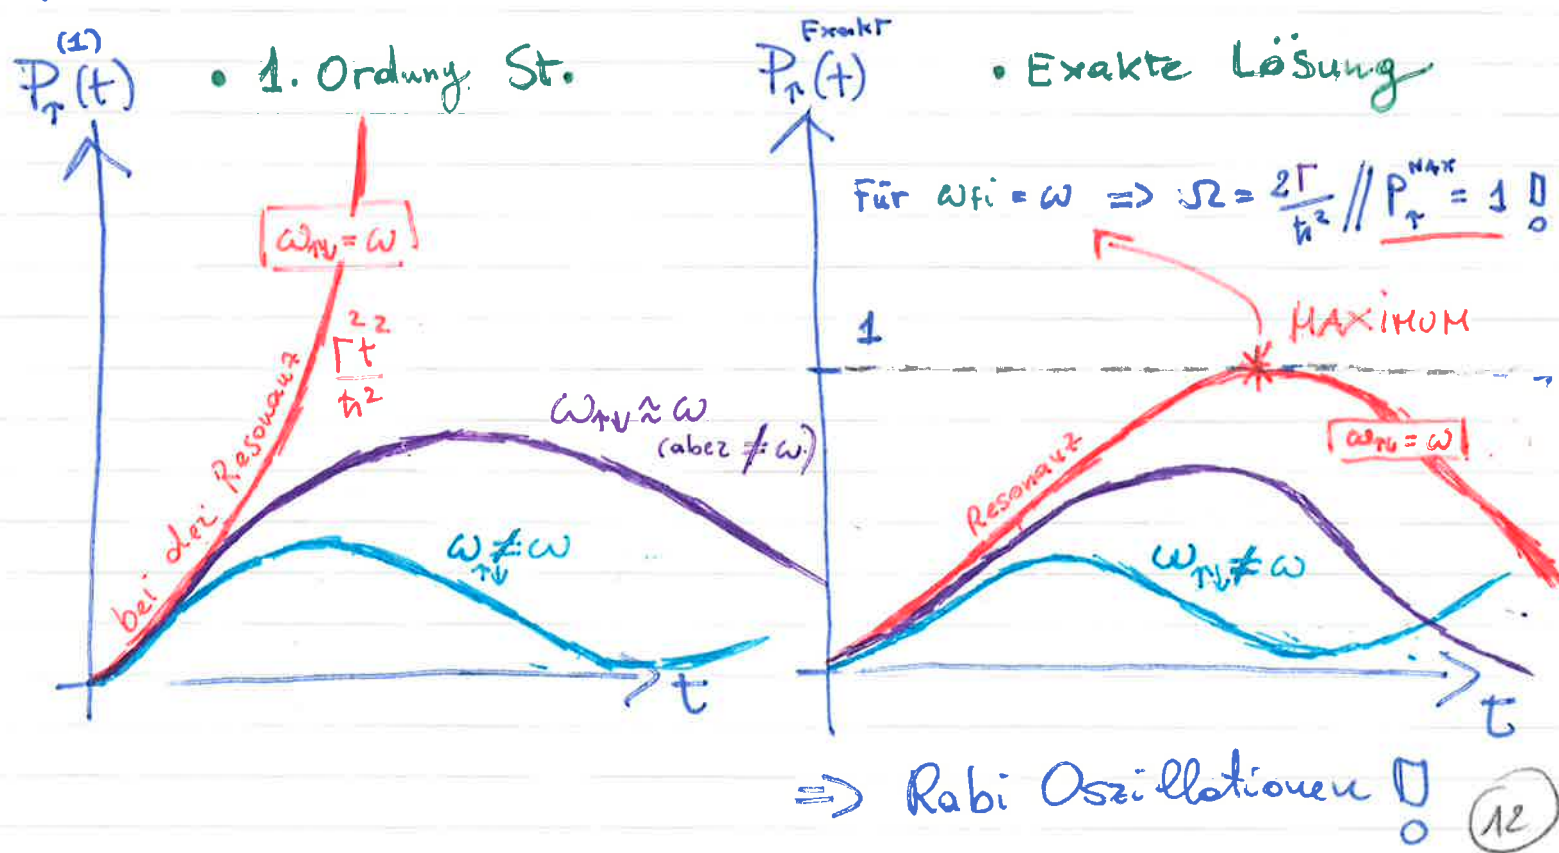 P↑⁽¹⁾(t) • 1. Ordung St.
ω↑↓ = ω
bei der Resonanz
Γ²t²/ħ²
ω↑↓ ≈ ω
(aber ≠ ω)
ω↑↓ ≠ ω
t
P↑^Exakt(t) • Exakte Lösung
Für ωfi = ω => Ω = 2Γ/ħ² // P↑^MAX = 1 !
1
MAXIMUM
Resonanz
ω↑↓ = ω
ω↑↓ ≠ ω
t
=> Rabi Oszillationen !
12